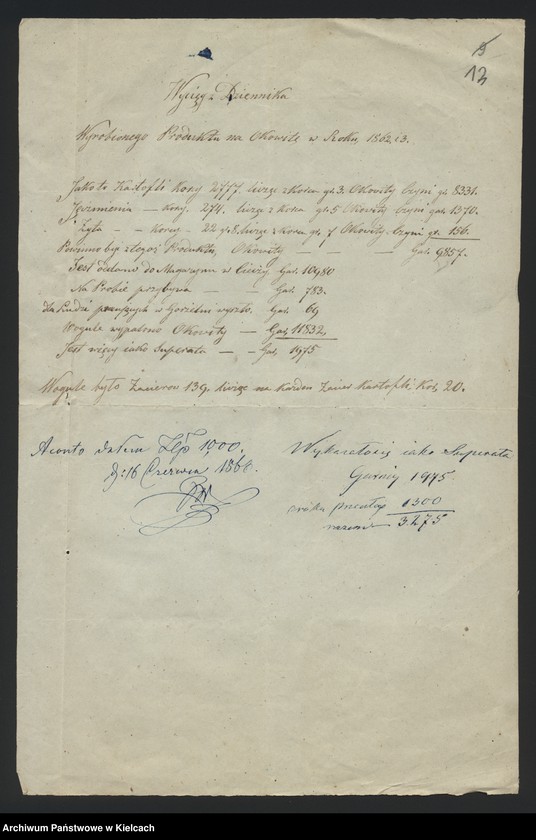 13
Wyciąg z Dziennika
Wyrobionego Produktu na Okowitę w Roku 1862/3.
Jakoto Kartofli Korcy 2777. licząc z Korca gr. 3. Okowity Czyni gr. 8331.
Jęczmienia — Korcy. 274. licząc z Korca gr. 5 Okowity Czyni gar. 1370.
Żyta - - Korcy - 22 g. 8. licząc z Korca gr. 7 Okowity. Czyni gr. 156.
Powinno być z tego Produktu, Okowity — — — Gar. 9857.
Jest oddano do Magazynu w Cieczy Gar. 10980
Na Probie przybyło — — Gar. 783.
dla Ludzi w Gorzelni Gar. 69
Wogule wypalono Okowity — Gar. 11832.
Jest więcej iako Superata — — Gar. 1975
Wogule było Zacierów 139. licząc na Każden Zacier Kartofli, Kor. 20.
Aconto dałem Złp 1000.
D: 16 Czerwca 186
Wykazałosię iako Superata
Garncy 1975.
zroku 1300
razem 3275
Archiwum Państwowe w Kielcach